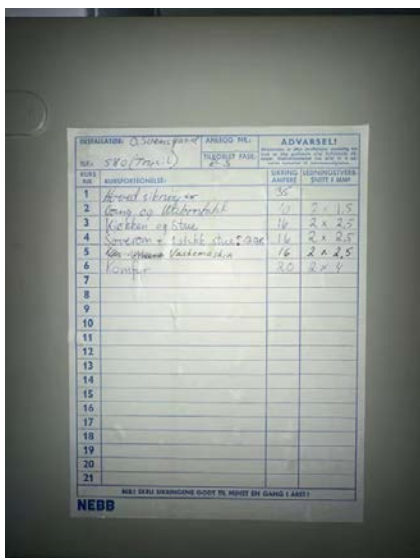 INSTALLATØR: O. Svensgaard ANLEGG NR.: ADVARSEL!
NR. 580 (Tomil) TILKOBLET FASE: R-S
KURS NR. KURSFORTEGNELSE: SIKRING AMPERE LEDNINGSTVERR- SNITT I MM²
1 Hovedsikringer 35
2 Gang og 10 2 x 1,5
3 Kjøkken og Stue 16 2 x 2,5
4 Soverom + 1 stikk stue 16 2 x 2,5
5 Vaskemaskin 16 2 x 2,5
6 Komfyr 20 2 x 4
7
8
9
10
11
12
13
14
15
16
17
18
19
20
21
NB.! SKRU SIKRINGENE GODT TIL MINST EN GANG I ÅRET!
NEBB